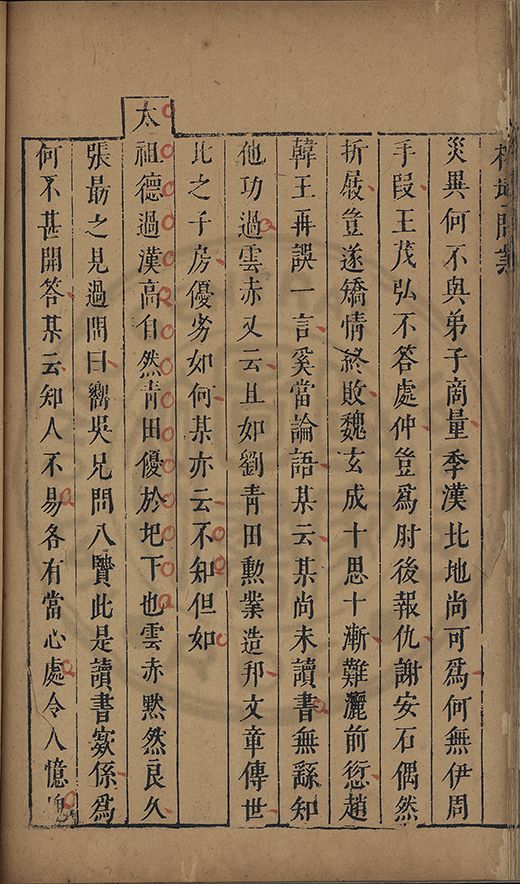 榕壇問業
災異何不與弟子商量季漢北地尚可爲何無伊周
手段王茂弘不答處仲豈爲肘後報仇謝安石偶然
折屐豈遂矯情終敗魏玄成十思十漸難灑前愆趙
韓王再誤一言奚當論語某云某尚未讀書無繇知
他功過雲赤又云且如劉青田勲業造邦文章傳世
比之子房優劣如何某亦云不知但如
太祖德過漢高自然青田優於圯下也雲赤黙然良久
張勗之見過問曰嚮吳兄問八賢此是讀書窽係爲
何不甚開答某云知人不易各有當心處令人憶